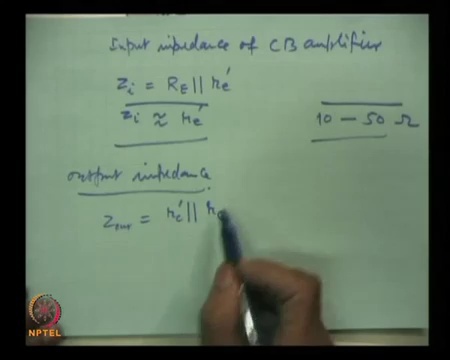 Input impedance of CB amplifier
Zi = RE || re'
Zi ≈ re'
10 — 50 Ω
output impedance
Zout = rc' ||
NPTEL